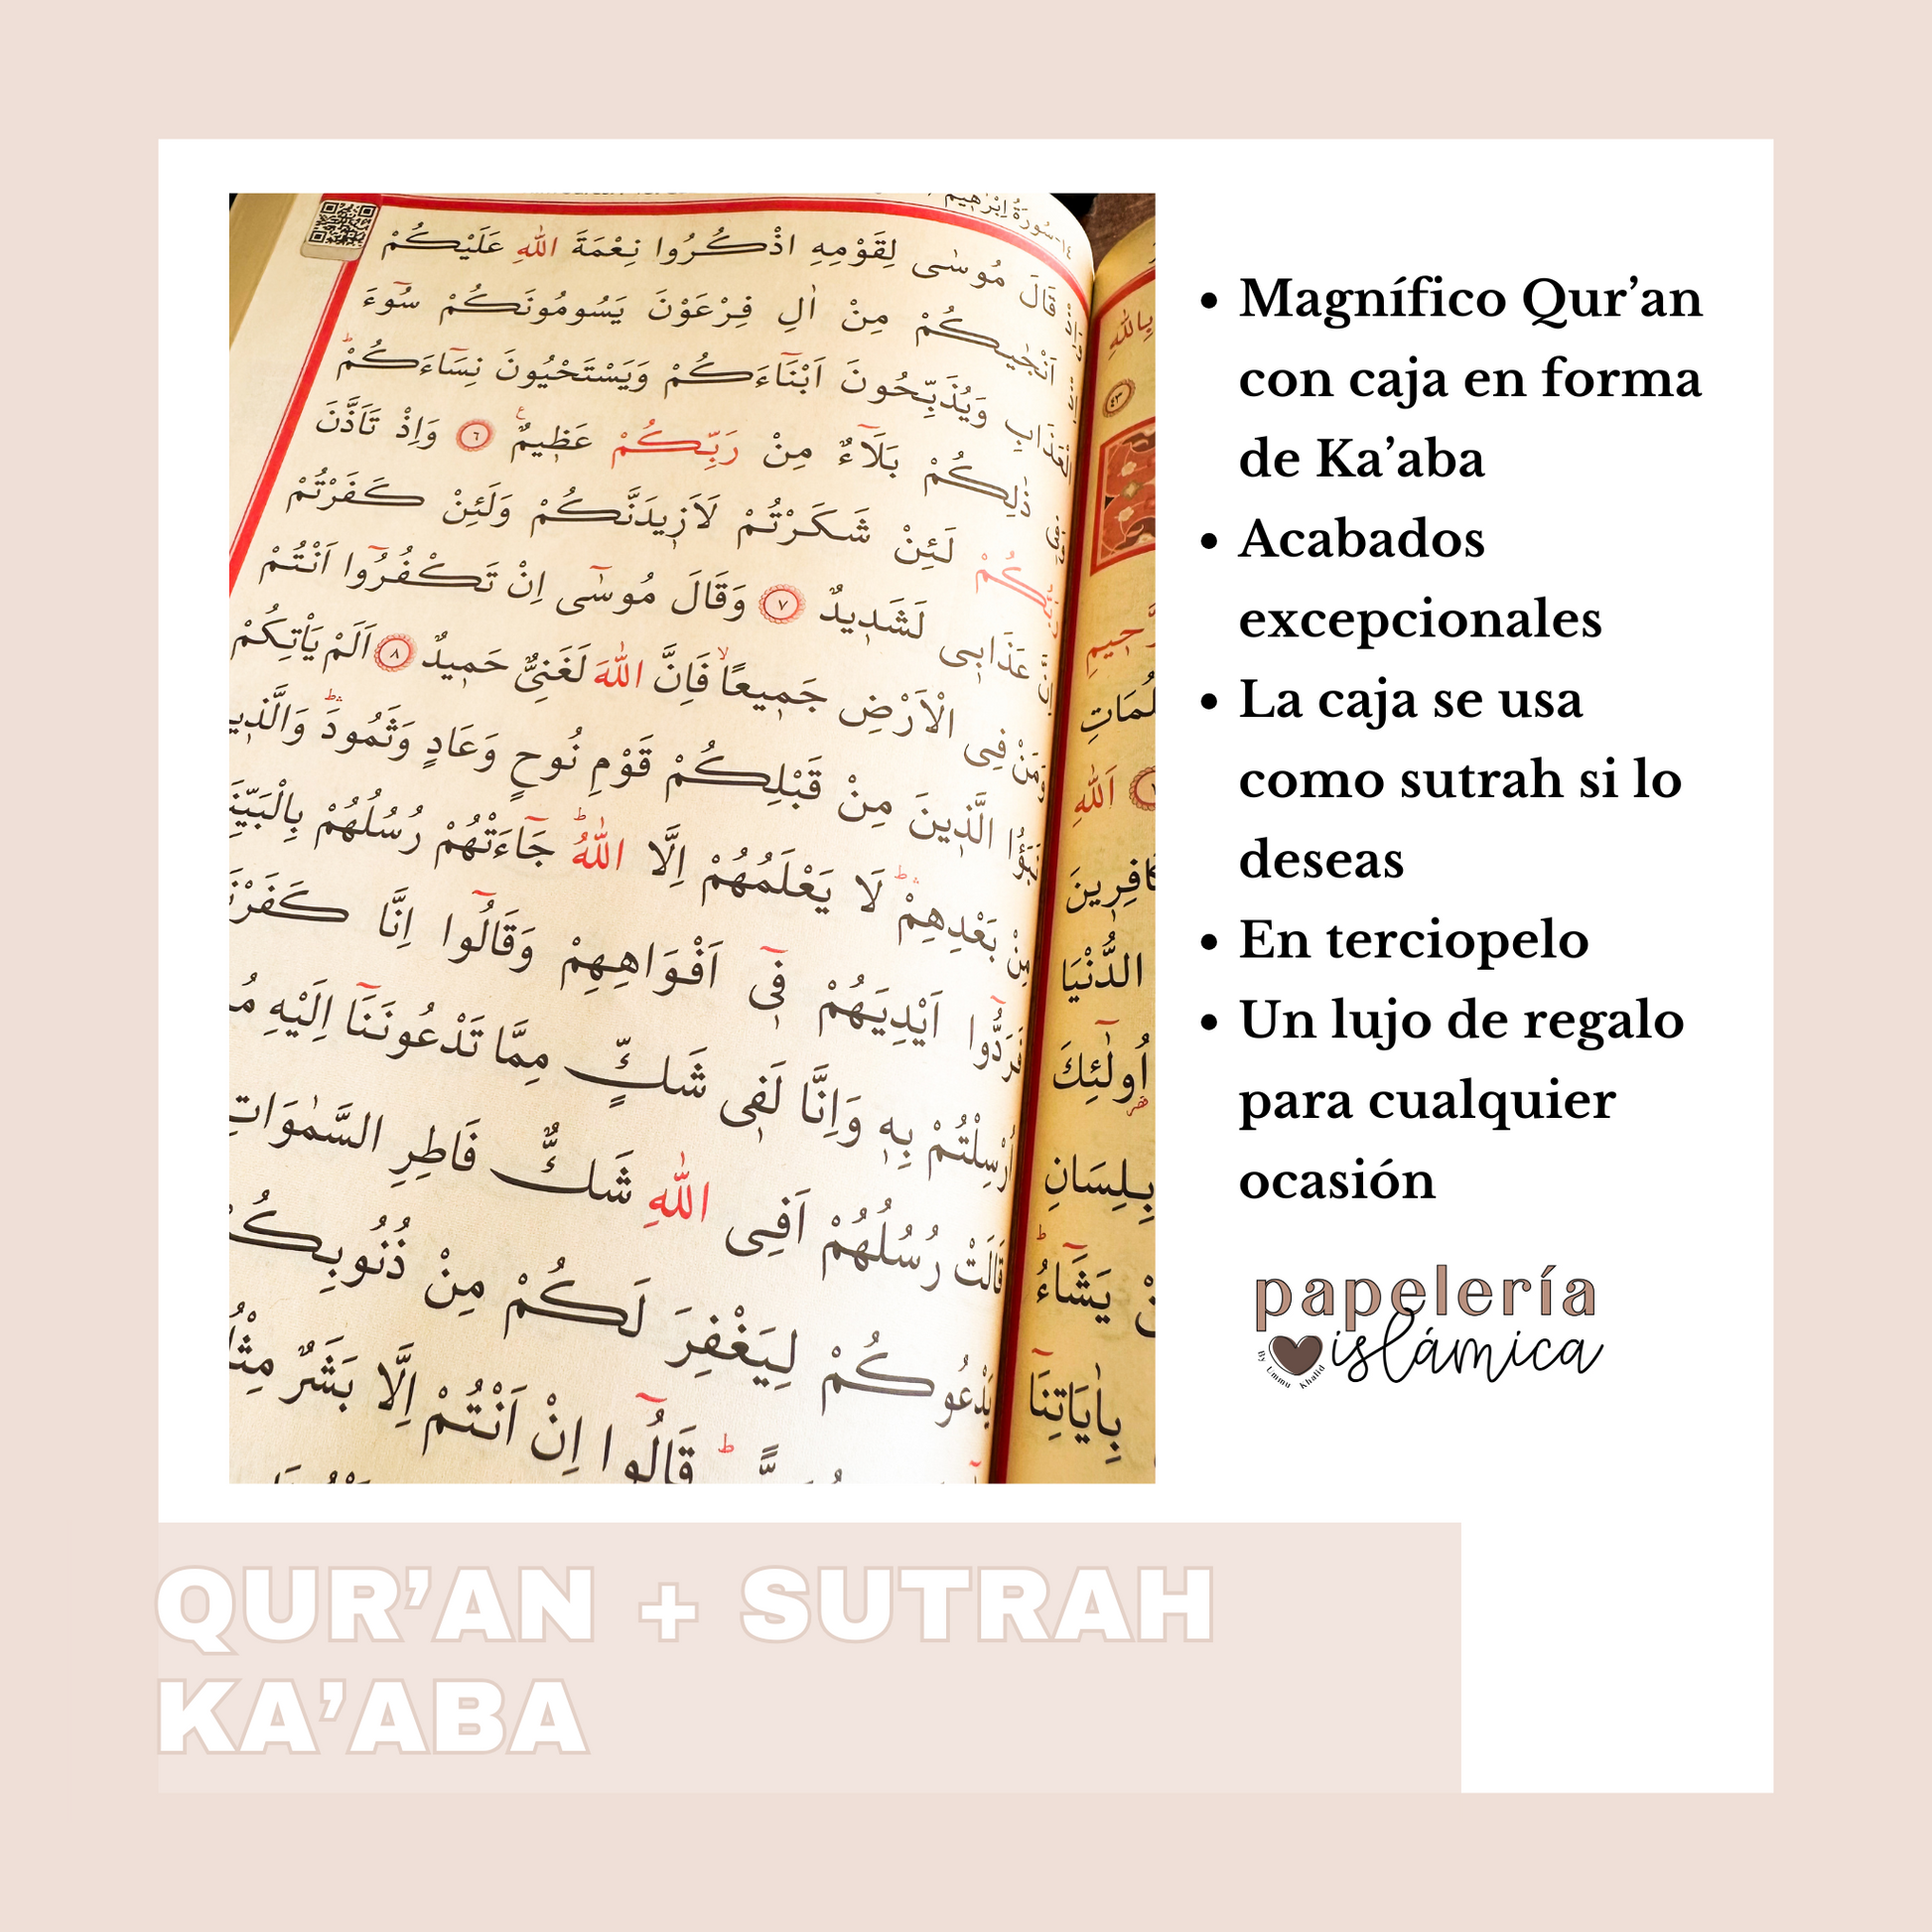 ١٤-سُورَةُ اِبْرٰهِيمَ
قَالَ مُوسٰى لِقَوْمِهِ اذْكُرُوا نِعْمَةَ اللّٰهِ عَلَيْكُمْ
اَنْجٰيكُمْ مِنْ اٰلِ فِرْعَوْنَ يَسُومُونَكُمْ سُٓوءَ
الْعَذَابِ وَيُذَبِّحُونَ اَبْنَٓاءَكُمْ وَيَسْتَحْيُونَ نِسَٓاءَكُمْۜ
ذٰلِكُمْ بَلَٓاءٌ مِنْ رَبِّكُمْ عَظِيمٌ ٦ وَاِذْ تَاَذَّنَ
لَئِنْ شَكَرْتُمْ لَاَزِيدَنَّكُمْ وَلَئِنْ كَفَرْتُمْ
عَذَابِي لَشَدِيدٌ ٧ وَقَالَ مُوسٰٓى اِنْ تَكْفُرُٓوا اَنْتُمْ
وَمَنْ فِي الْاَرْضِ جَمِيعًا فَاِنَّ اللّٰهَ لَغَنِيٌّ حَمِيدٌ ٨ اَلَمْ يَأْتِكُمْ
نَبَؤُا الَّذِينَ مِنْ قَبْلِكُمْ قَوْمِ نُوحٍ وَعَادٍ وَثَمُودَ وَالَّذِينَ
مِنْ بَعْدِهِمْ لَا يَعْلَمُهُمْ اِلَّا اللّٰهُ جَٓاءَتْهُمْ رُسُلُهُمْ بِالْبَيِّنَ
فَرَدُّٓوا اَيْدِيَهُمْ فِٓي اَفْوَاهِهِمْ وَقَالُٓوا اِنَّا كَفَرْنَ
اُرْسِلْتُمْ بِهِ وَاِنَّا لَفِي شَكٍّ مِمَّا تَدْعُونَنَٓا اِلَيْهِ مُ
قَالَتْ رُسُلُهُمْ اَفِي اللّٰهِ شَكٌّ فَاطِرِ السَّمٰوَاتِ
يَدْعُوكُمْ لِيَغْفِرَ لَكُمْ مِنْ ذُنُوبِكُ
قَالُٓوا اِنْ اَنْتُمْ اِلَّا بَشَرٌ مِثْلُ
بِاللّٰهِ
٤٣
اَللّٰهِ
الدُّنْيَا
اُولٰٓئِكَ
بِلِسَانِ
يَشَٓاءُ
بِاٰيَاتِنَٓا
Magnífico Qur’an
con caja en forma
de Ka’aba
Acabados
excepcionales
La caja se usa
como sutrah si lo
deseas
En terciopelo
Un lujo de regalo
para cualquier
ocasión
papelería
islámica
By Ummu Khalid
QUR’AN + SUTRAH
KA’ABA